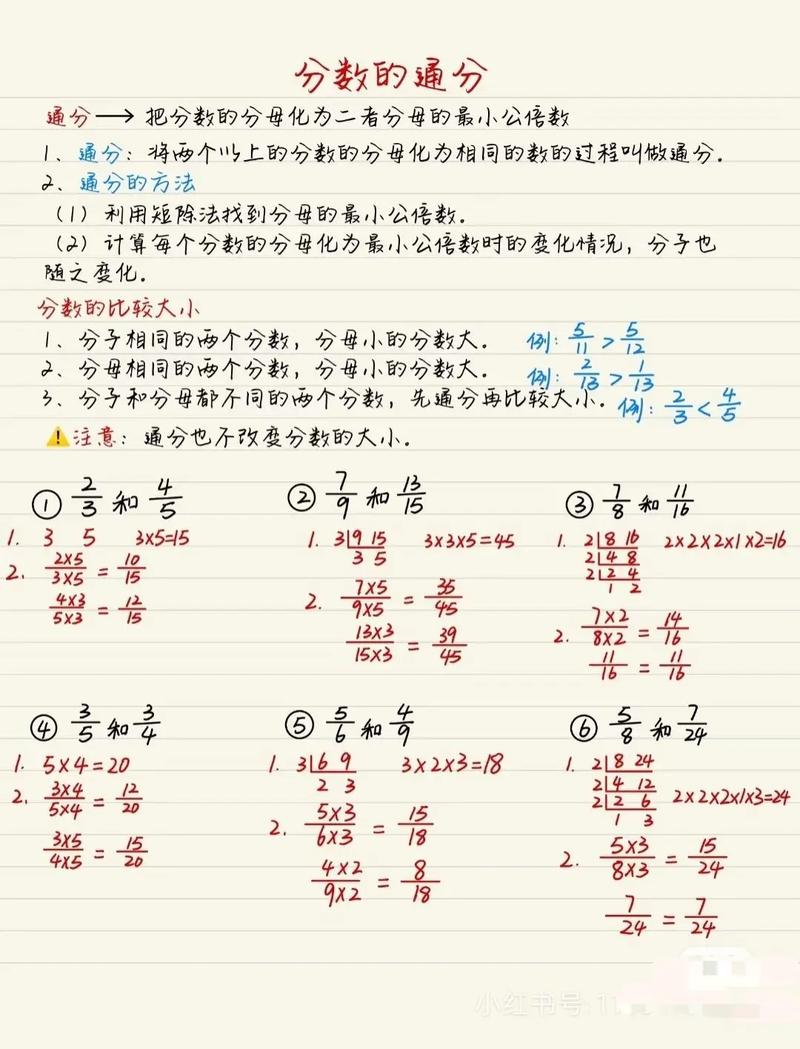 分数的通分
通分→ 把分数的分母化为二者分母的最小公倍数
1、通分：将两个以上的分数的分母化为相同的数的过程叫做通分.
2、通分的方法
（1）利用短除法找到分母的最小公倍数.
（2）计算每个分数的分母化为最小公倍数时的变化情况，分子也
随之变化.
分数的比较大小
1、分子相同的两个分数，分母小的分数大. 例：5/11 > 5/12
2、分母相同的两个分数，分母小的分数大. 例：2/13 > 1/13
3、分子和分母都不同的两个分数，先通分再比较大小. 例：2/3 < 4/5
⚠注意：通分也不改变分数的大小.
① 2/3 和 4/5
1. 3 5 3×5=15
2. 2×5/3×5 = 10/15
4×3/5×3 = 12/15
② 7/9 和 13/15
1. 3 9 15 3×3×5=45
3 5
2. 7×5/9×5 = 35/45
13×3/15×3 = 39/45
③ 7/8 和 11/16
1. 2 8 16 2×2×2×1×2=16
2 4 8
2 2 4
1 2
2. 7×2/8×2 = 14/16
11/16 = 11/16
④ 3/5 和 3/4
1. 5×4=20
2. 3×4/5×4 = 12/20
3×5/4×5 = 15/20
⑤ 5/6 和 4/9
1. 3 6 9 3×2×3=18
2 3
2. 5×3/6×3 = 15/18
4×2/9×2 = 8/18
⑥ 5/8 和 7/24
1. 2 8 24
2 4 12
2 2 6 2×2×2×1×3=24
1 3
2. 5×3/8×3 = 15/24
7/24 = 7/24
小红书号: 11